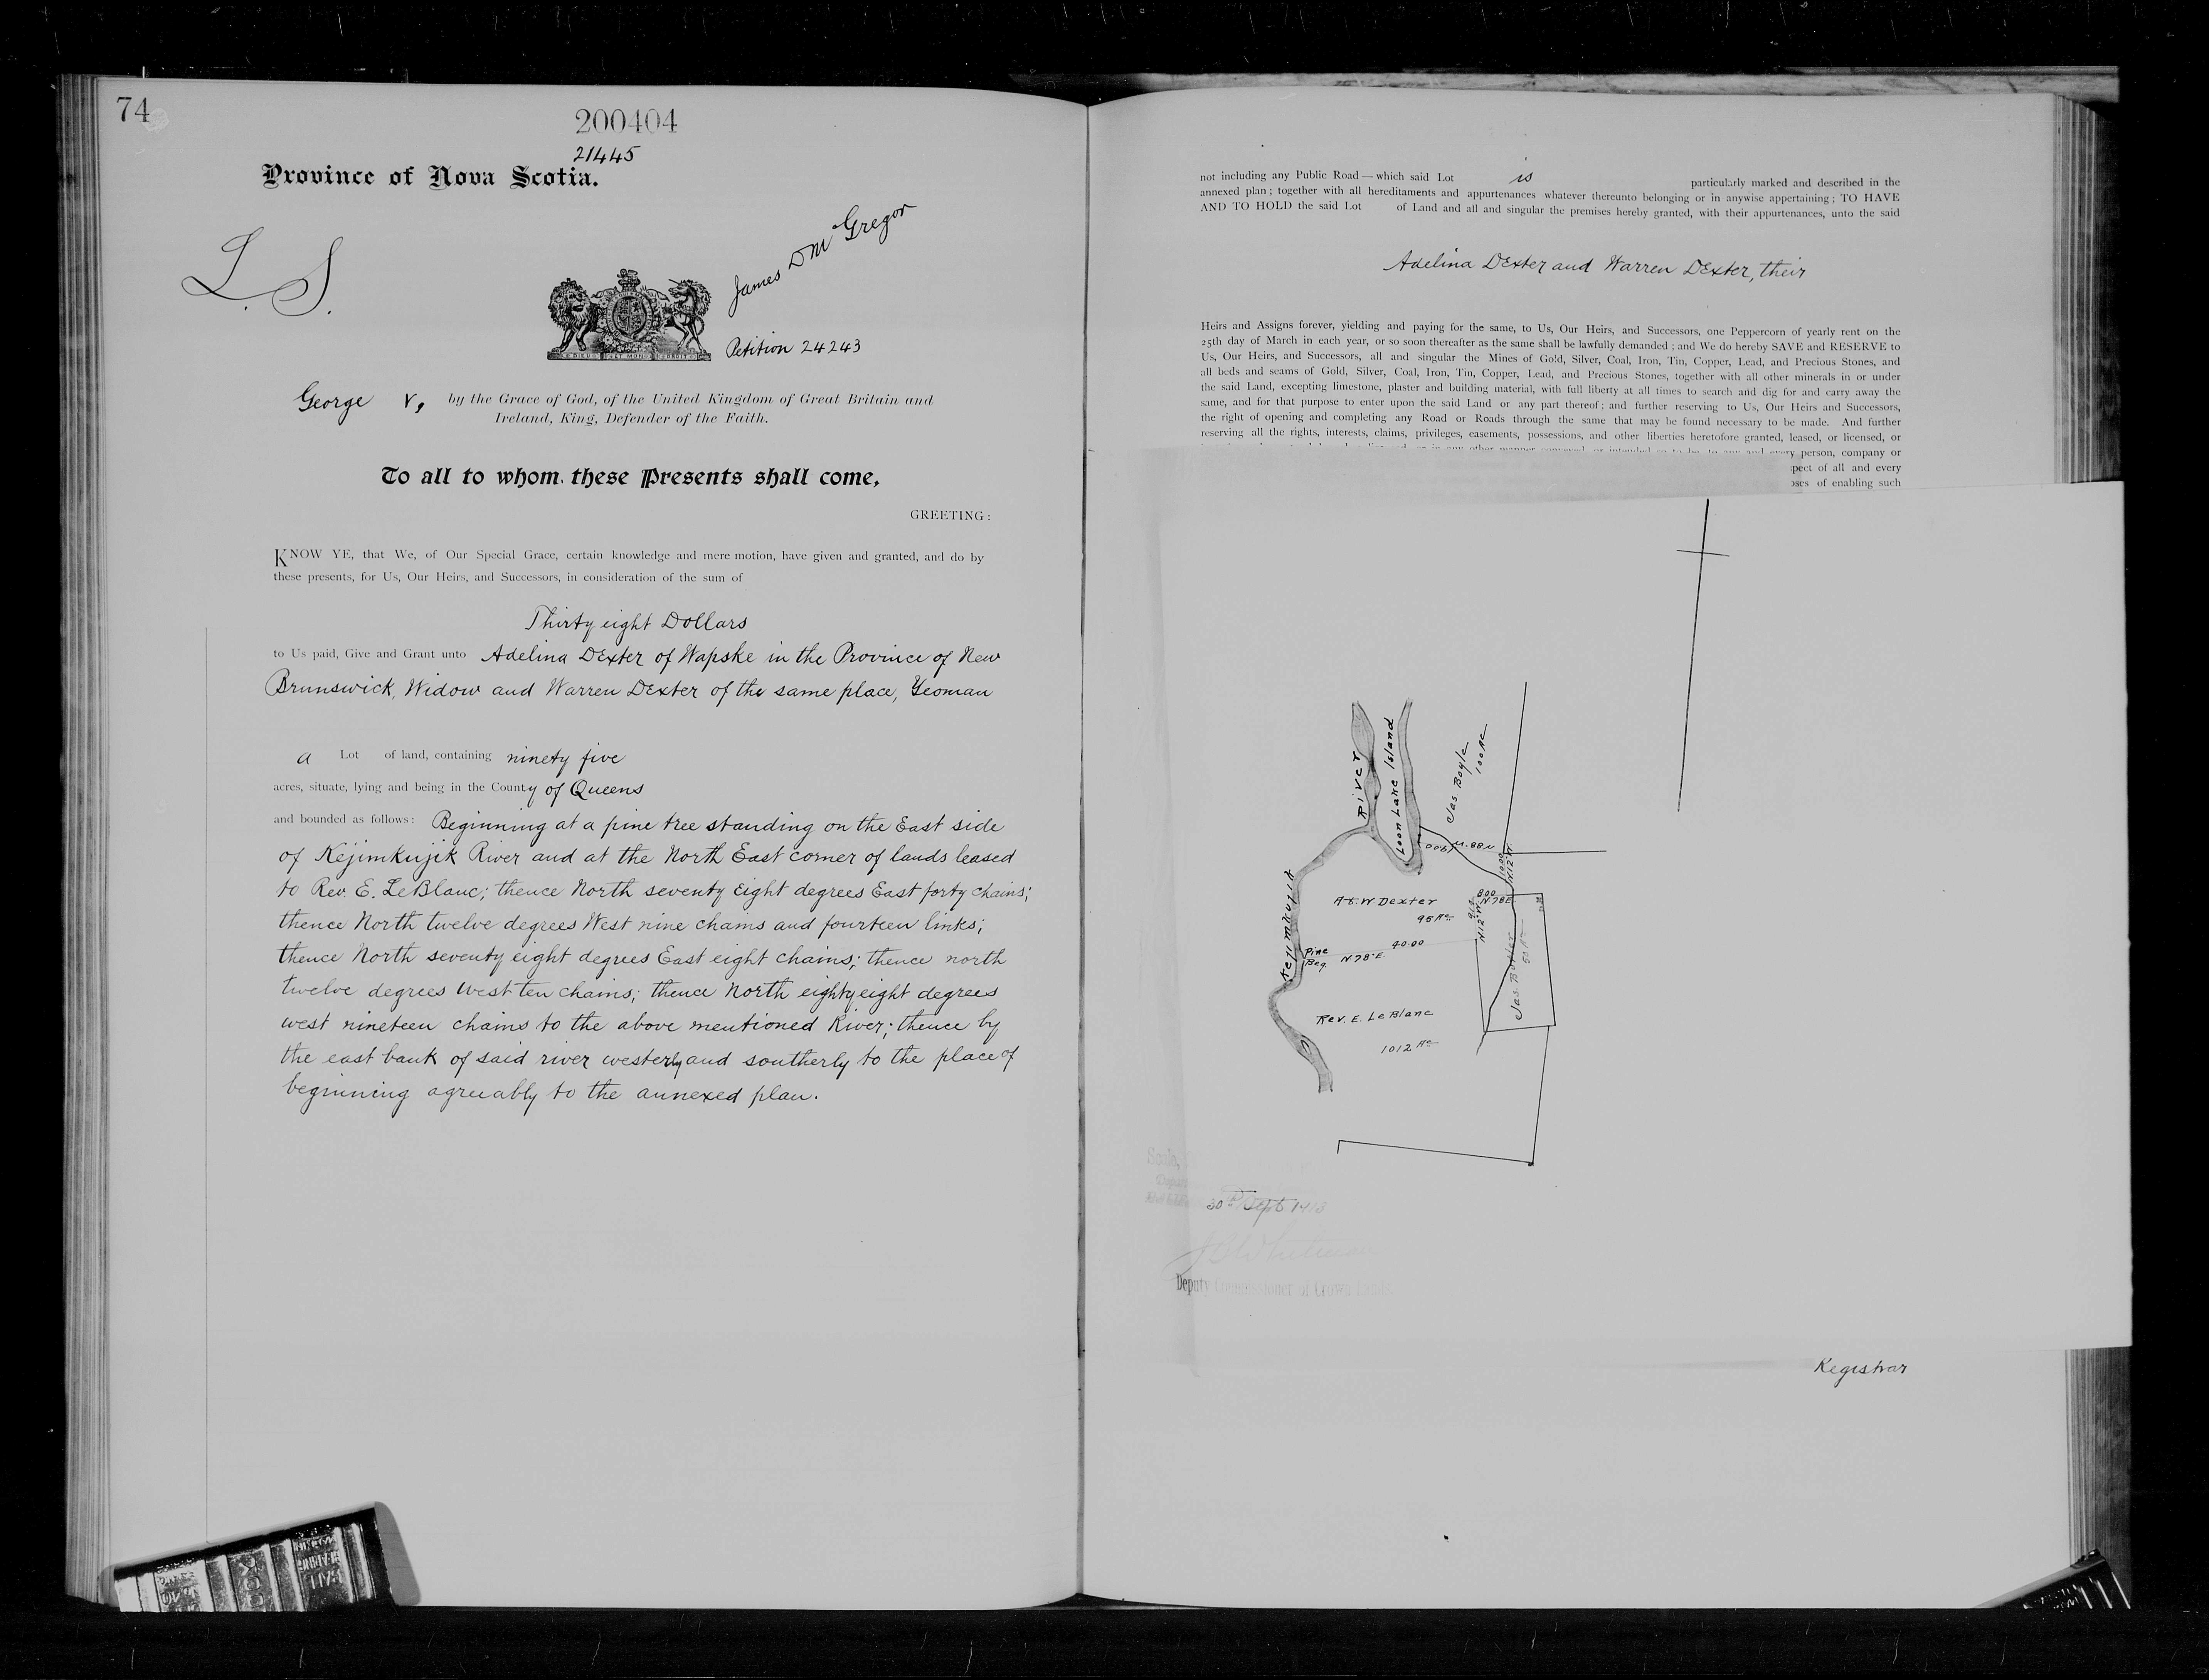 74
200404
21445
Province of Nova Scotia.
L. S.
James D McGregor
DIEU ET MON DROIT
Petition 24243
George V, by the Grace of God, of the United Kingdom of Great Britain and
Ireland, King, Defender of the Faith.
To all to whom these Presents shall come,
GREETING:
KNOW YE, that We, of Our Special Grace, certain knowledge and mere motion, have given and granted, and do by
these presents, for Us, Our Heirs, and Successors, in consideration of the sum of
Thirty eight Dollars
to Us paid, Give and Grant unto Adelina Dexter of Wapske in the Province of New
Brunswick, Widow and Warren Dexter of the same place, Yeoman
a Lot of land, containing ninety five
acres, situate, lying and being in the County of Queens
and bounded as follows: Beginning at a pine tree standing on the East side
of Kejimkujik River and at the North East corner of lands leased
to Rev. E. LeBlanc; thence North seventy Eight degrees East forty chains;
thence North twelve degrees West nine chains and fourteen links;
thence North seventy eight degrees East eight chains; thence north
twelve degrees west ten chains; thence North eighty eight degrees
west nineteen chains to the above mentioned River; thence by
the east bank of said river westerly and southerly to the place of
beginning agreeably to the annexed plan.
not including any Public Road — which said Lot is particularly marked and described in the
annexed plan; together with all hereditaments and appurtenances whatever thereunto belonging or in anywise appertaining; TO HAVE
AND TO HOLD the said Lot of Land and all and singular the premises hereby granted, with their appurtenances, unto the said
Adelina Dexter and Warren Dexter, their
Heirs and Assigns forever, yielding and paying for the same, to Us, Our Heirs, and Successors, one Peppercorn of yearly rent on the
25th day of March in each year, or so soon thereafter as the same shall be lawfully demanded; and We do hereby SAVE and RESERVE to
Us, Our Heirs, and Successors, all and singular the Mines of Gold, Silver, Coal, Iron, Tin, Copper, Lead, and Precious Stones, and
all beds and seams of Gold, Silver, Coal, Iron, Tin, Copper, Lead, and Precious Stones, together with all other minerals in or under
the said Land, excepting limestone, plaster and building material, with full liberty at all times to search and dig for and carry away the
same, and for that purpose to enter upon the said Land or any part thereof; and further reserving to Us, Our Heirs and Successors,
the right of opening and completing any Road or Roads through the same that may be found necessary to be made. And further
reserving all the rights, interests, claims, privileges, easements, possessions, and other liberties heretofore granted, leased, or licensed, or
or in any other manner conveyed, or intended so to be, to any and every person, company or
pect of all and every
oses of enabling such
River
Loon Lake Island
Jas. Boyle
100 Ac
1900 N.88W
10.00
N12°W
800
N78E
A & W Dexter
95 Ac
914
N12°W
Kejimkujik
Pine
Beg.
N78°E
40.00
Jas.
50 Ac
Rev. E. LeBlanc
1012 Ac
Scale,
30th Sept 1913
Deputy Commissioner of Crown Lands
Registrar